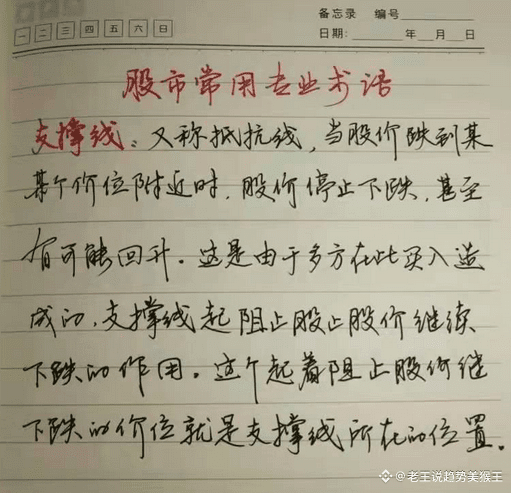 备忘录 编号
一 二 三 四 五 六 日
日期: 年 月 日
股市常用专业术语
支撑线:又称抵抗线,当股价跌到某
某个价位附近时,股价停止下跌,甚至
有可能回升。这是由于多方在此买入造
成的,支撑线起阻止股止股价继续
下跌的作用。这个起着阻止股价继
下跌的价位就是支撑线所在的位置。
@老王说趋势美猴王